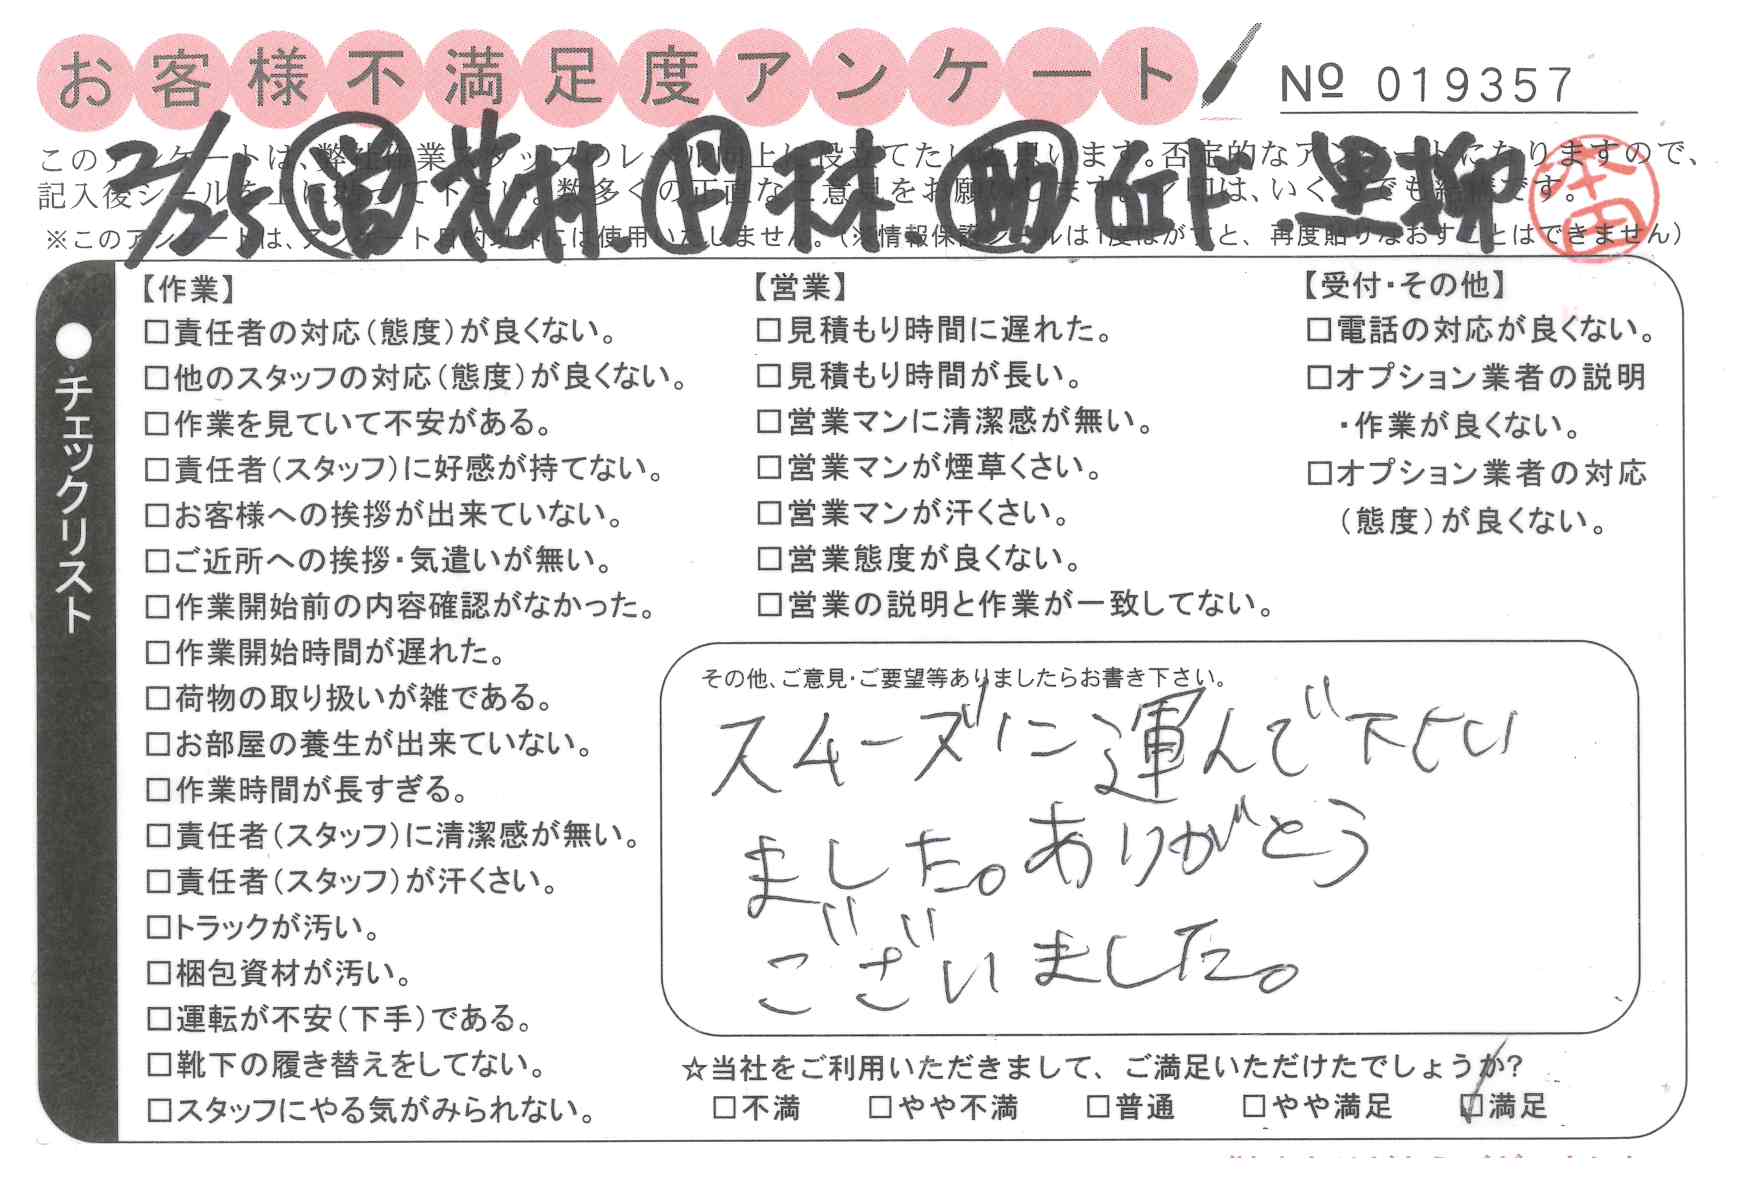 お客様不満足度アンケート
№ 019357
このアンケートは、弊社作業スタッフのレベル向上に役立てたいと思います。否定的なアンケートになりますので、
記入後シールを上に貼って下さい。数多くの正直なご意見をお願いします。ハンコ印は、いくつでも結構です。
2/25 営 花村. ド 末森 助 丘ド. 黒柳 本田
※このアンケートは、アンケート目的以外には使用いたしません。(※情報保護シールは1度はがすと、再度貼りなおすことはできません)
●チェックリスト
【作業】
□責任者の対応(態度)が良くない。
□他のスタッフの対応(態度)が良くない。
□作業を見ていて不安がある。
□責任者(スタッフ)に好感が持てない。
□お客様への挨拶が出来ていない。
□ご近所への挨拶・気遣いが無い。
□作業開始前の内容確認がなかった。
□作業開始時間が遅れた。
□荷物の取り扱いが雑である。
□お部屋の養生が出来ていない。
□作業時間が長すぎる。
□責任者(スタッフ)に清潔感が無い。
□責任者(スタッフ)が汗くさい。
□トラックが汚い。
□梱包資材が汚い。
□運転が不安(下手)である。
□靴下の履き替えをしてない。
□スタッフにやる気がみられない。
【営業】
□見積もり時間に遅れた。
□見積もり時間が長い。
□営業マンに清潔感が無い。
□営業マンが煙草くさい。
□営業マンが汗くさい。
□営業態度が良くない。
□営業の説明と作業が一致してない。
【受付・その他】
□電話の対応が良くない。
□オプション業者の説明
・作業が良くない。
□オプション業者の対応
(態度)が良くない。
その他、ご意見・ご要望等ありましたらお書き下さい。
スムーズに運んで下さい
ました。ありがとう
ございました。
☆当社をご利用いただきまして、ご満足いただけたでしょうか?
□不満 □やや不満 □普通 □やや満足 ☑満足